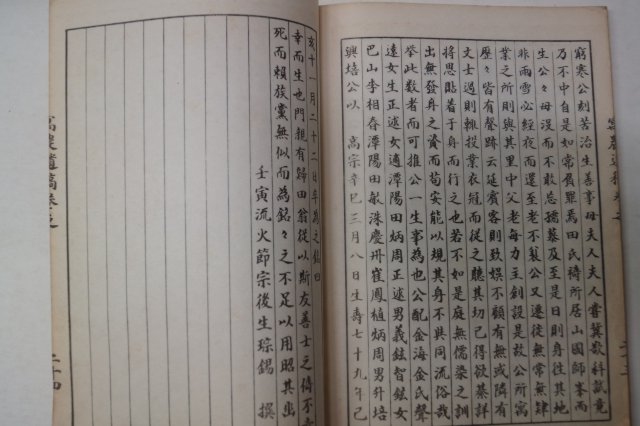 窮寒公刻苦治生善事母夫人夫人嘗冀
乃不中自是如常負罪焉田氏禱所居山國師峯而
生公公母沒而不敢怠禱墓及至是日則身往其地
非雨雪必經夜而還至老不製公又遷徙無常無肄
業之所則與其里中父老每力主創設是故公所寓
歷々皆有聲跡云延賓客則致娛不顧有無或隣有
文士過則輒授業衣冠而從之聽其切已得欲綦詳
將思貼着于身而行之也若不如是庭無儒染之訓
出無發身之資而苟安能以規其身不與同流俗哉
擧此數者而可推公一生事為也公配金海金氏聲
遠女生正述女適潭陽田炳周正述男義鉉智鉉女
巴山李相春潭陽田敏洙慶州崔鳳植炳周男升培
興培公以 高宗辛巳三月八日生壽七十九年己
亥十一月二十二日卒為之銘曰
幸而生也門親有歸田翁從以斯友善士之儔不
死而賴侯黨無似而為銘々之不足以用昭其幽
壬寅流火節宗後生琮錫 撰
二十四